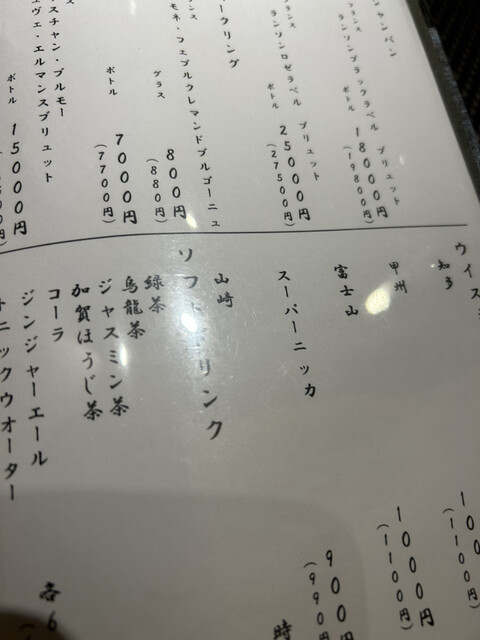 ャンパン
フランス
ランソンブラックラベル ブリュット
ボトル 18000円
(19800円)
フランス
ランソンロゼラベル ブリュット
ボトル 25000円
(27500円)
ークリング
ンス
モネ・フェブルクレマンドブルゴーニュ
グラス 800円
(880円)
ボトル 7000円
(7700円)
ンス
スチャン・ブルモー
ュヴェ・エルマンスブリュット
ボトル 15000円
ウイス
知多
100
(1100円)
甲州
1000円
(1100円)
富士山
900円
(990円)
スーパーニッカ
時
山崎
ソフトドリンク
緑茶
烏龍茶
ジャスミン茶
加賀ほうじ茶
コーラ
ジンジャーエール
ニックウオーター
各6